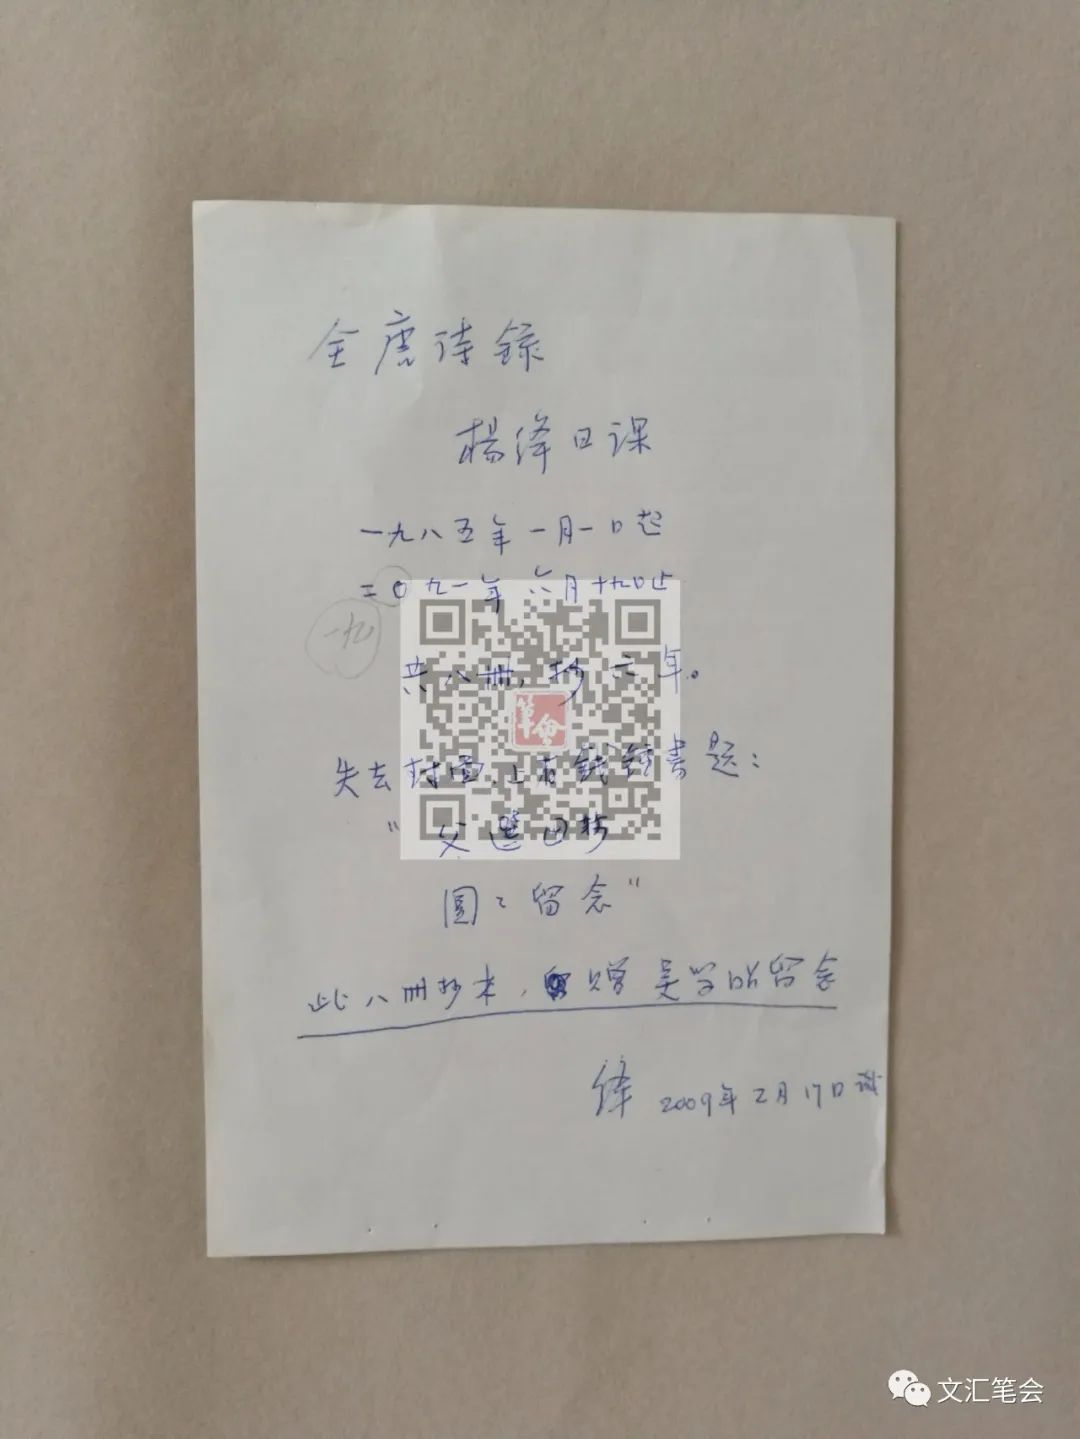 全唐诗録
楊绛日课
一九八五年一月一日起
二〇九一年六月十九日止
一九
共八册，抄六年。
失去封面，上有錢鍾書题：
"父選日抄
圆〻留念"
此八册抄本，赠吴学昭留念
绛 2009年二月17日识
筆會
文汇笔会